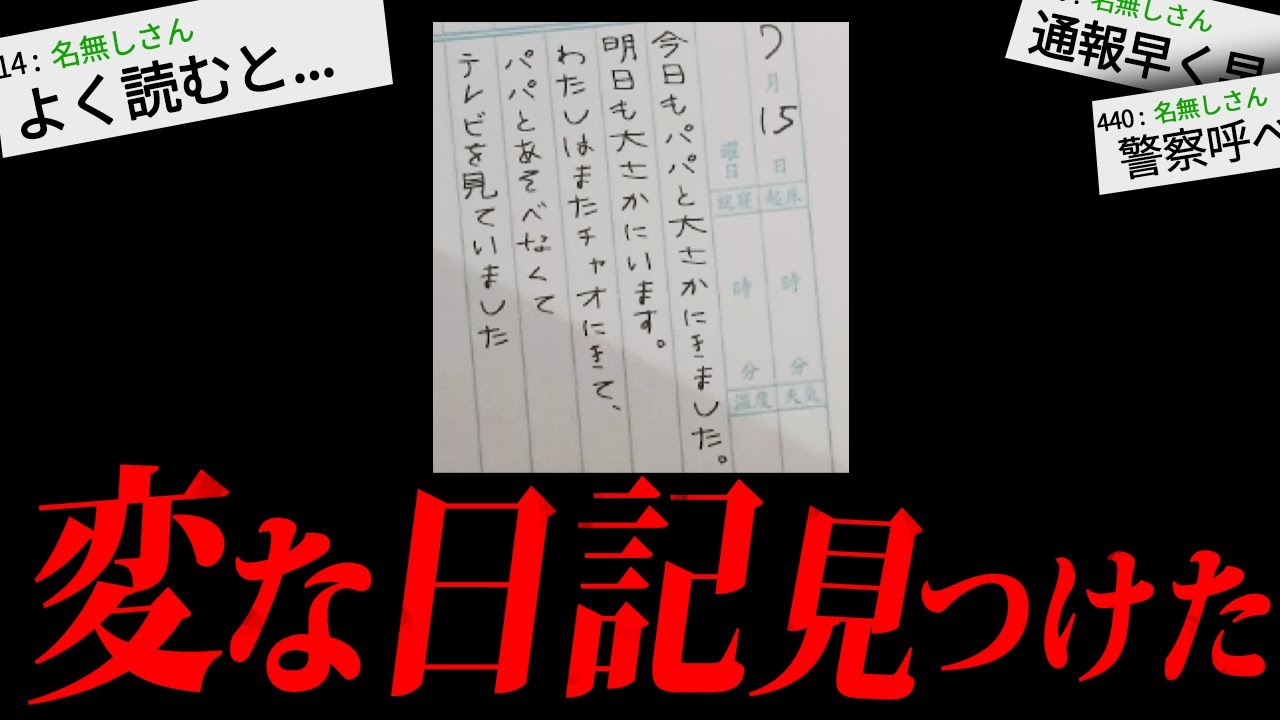 14 : 名無しさん
よく読むと...
名無しさん
通報早く早
440 : 名無しさん
警察呼べ
7月15日
曜日
就寝 起床
時 時
分 分
温度 天気
今日もパパと大さかにきました。
明日も大さかにいます。
わたしはまたチャオにきて、
パパとあそべなくて
テレビを見ていました
変な日記見つけた